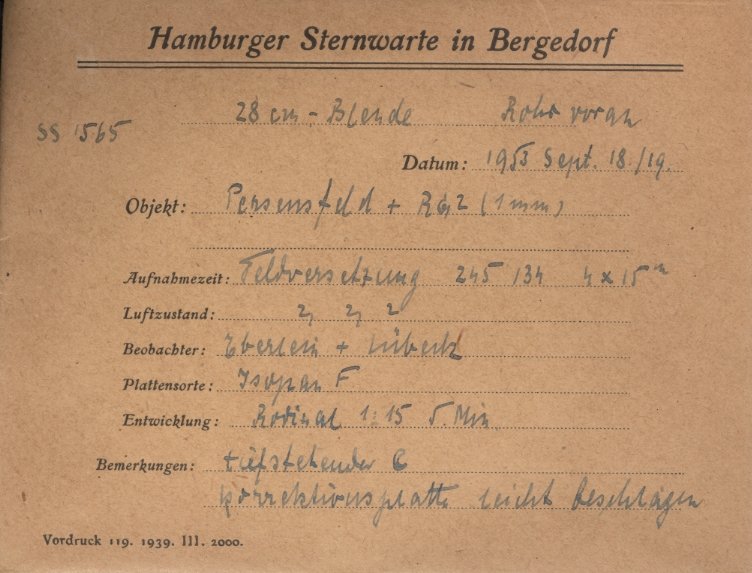 Hamburger Sternwarte in Bergedorf
28 cm - Blende Rohr voran
SS 1565
Datum: 1953 Sept. 18./19.
Objekt: Perseusfeld + RG 2 (1 mm)
Aufnahmezeit: Feldversetzung 245 134 4 x 15 m
Luftzustand: 2, 2, 2
Beobachter: Eberlein + Lübeck
Plattensorte: Isopan F
Entwicklung: Rodinal 1:15 5 Min
Bemerkungen: tiefstehender
Korrektionsplatte leicht beschlagen
Vordruck 119. 1939. III. 2000.